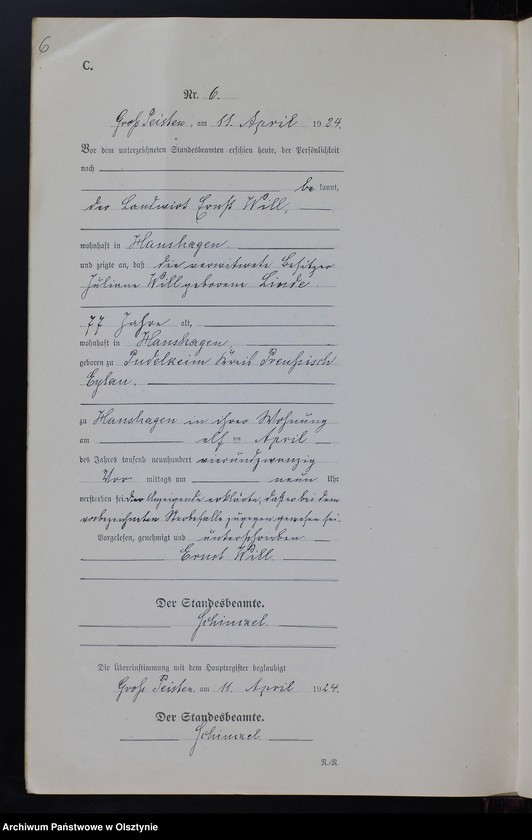 6
C.
Nr. 6.
Groß Peisten, am 11. April 1924.
Vor dem unterzeichneten Standesbeamten erschien heute, der Persönlichkeit
nach
be kannt,
der Landwirt Ernst Will,
wohnhaft in Hanshagen
und zeigte an, daß die verwitwete Besitzer
Juliane Will geborene Linde
77 Jahre alt,
wohnhaft in Hanshagen,
geboren zu Pudelkeim Kreis Preußisch
Eylau.
zu Hanshagen in ihrer Wohnung
am elf ten April
des Jahres tausend neunhundert vierundzwanzig
Vor mittags um neun Uhr
verstorben sei. Der Anzeigende erklärte, daß er bei dem
vorbezeichneten Sterbefalle zugegen gewesen sei.
Vorgelesen, genehmigt und unterschrieben
Ernst Will
Der Standesbeamte.
Schinkel.
Die Übereinstimmung mit dem Hauptregister beglaubigt
Groß Peisten, am 11. April 1924.
Der Standesbeamte.
Schinkel.
N.-R.
Archiwum Państwowe w Olsztynie